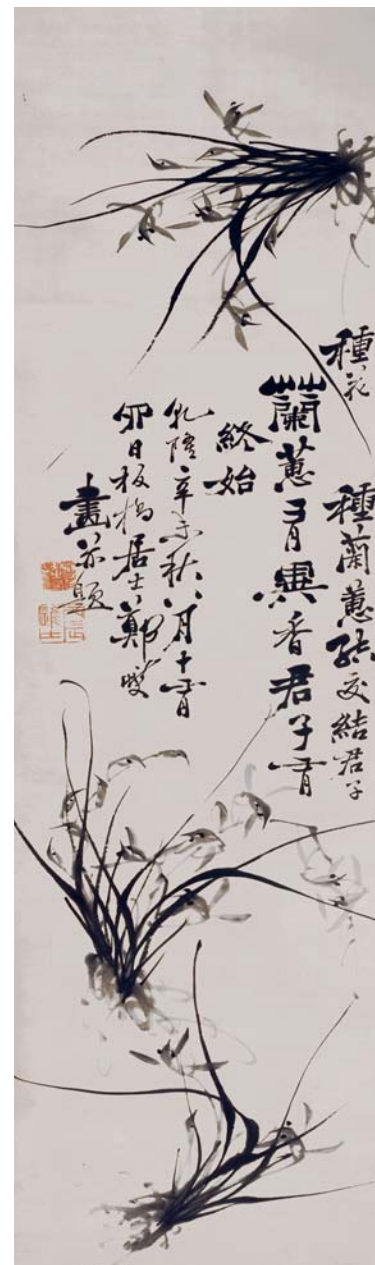 種花種蘭蕙結交結君子
蘭蕙有異香君子有
終始
乾隆辛未秋八月十有
日板橋居士鄭燮
畫并題